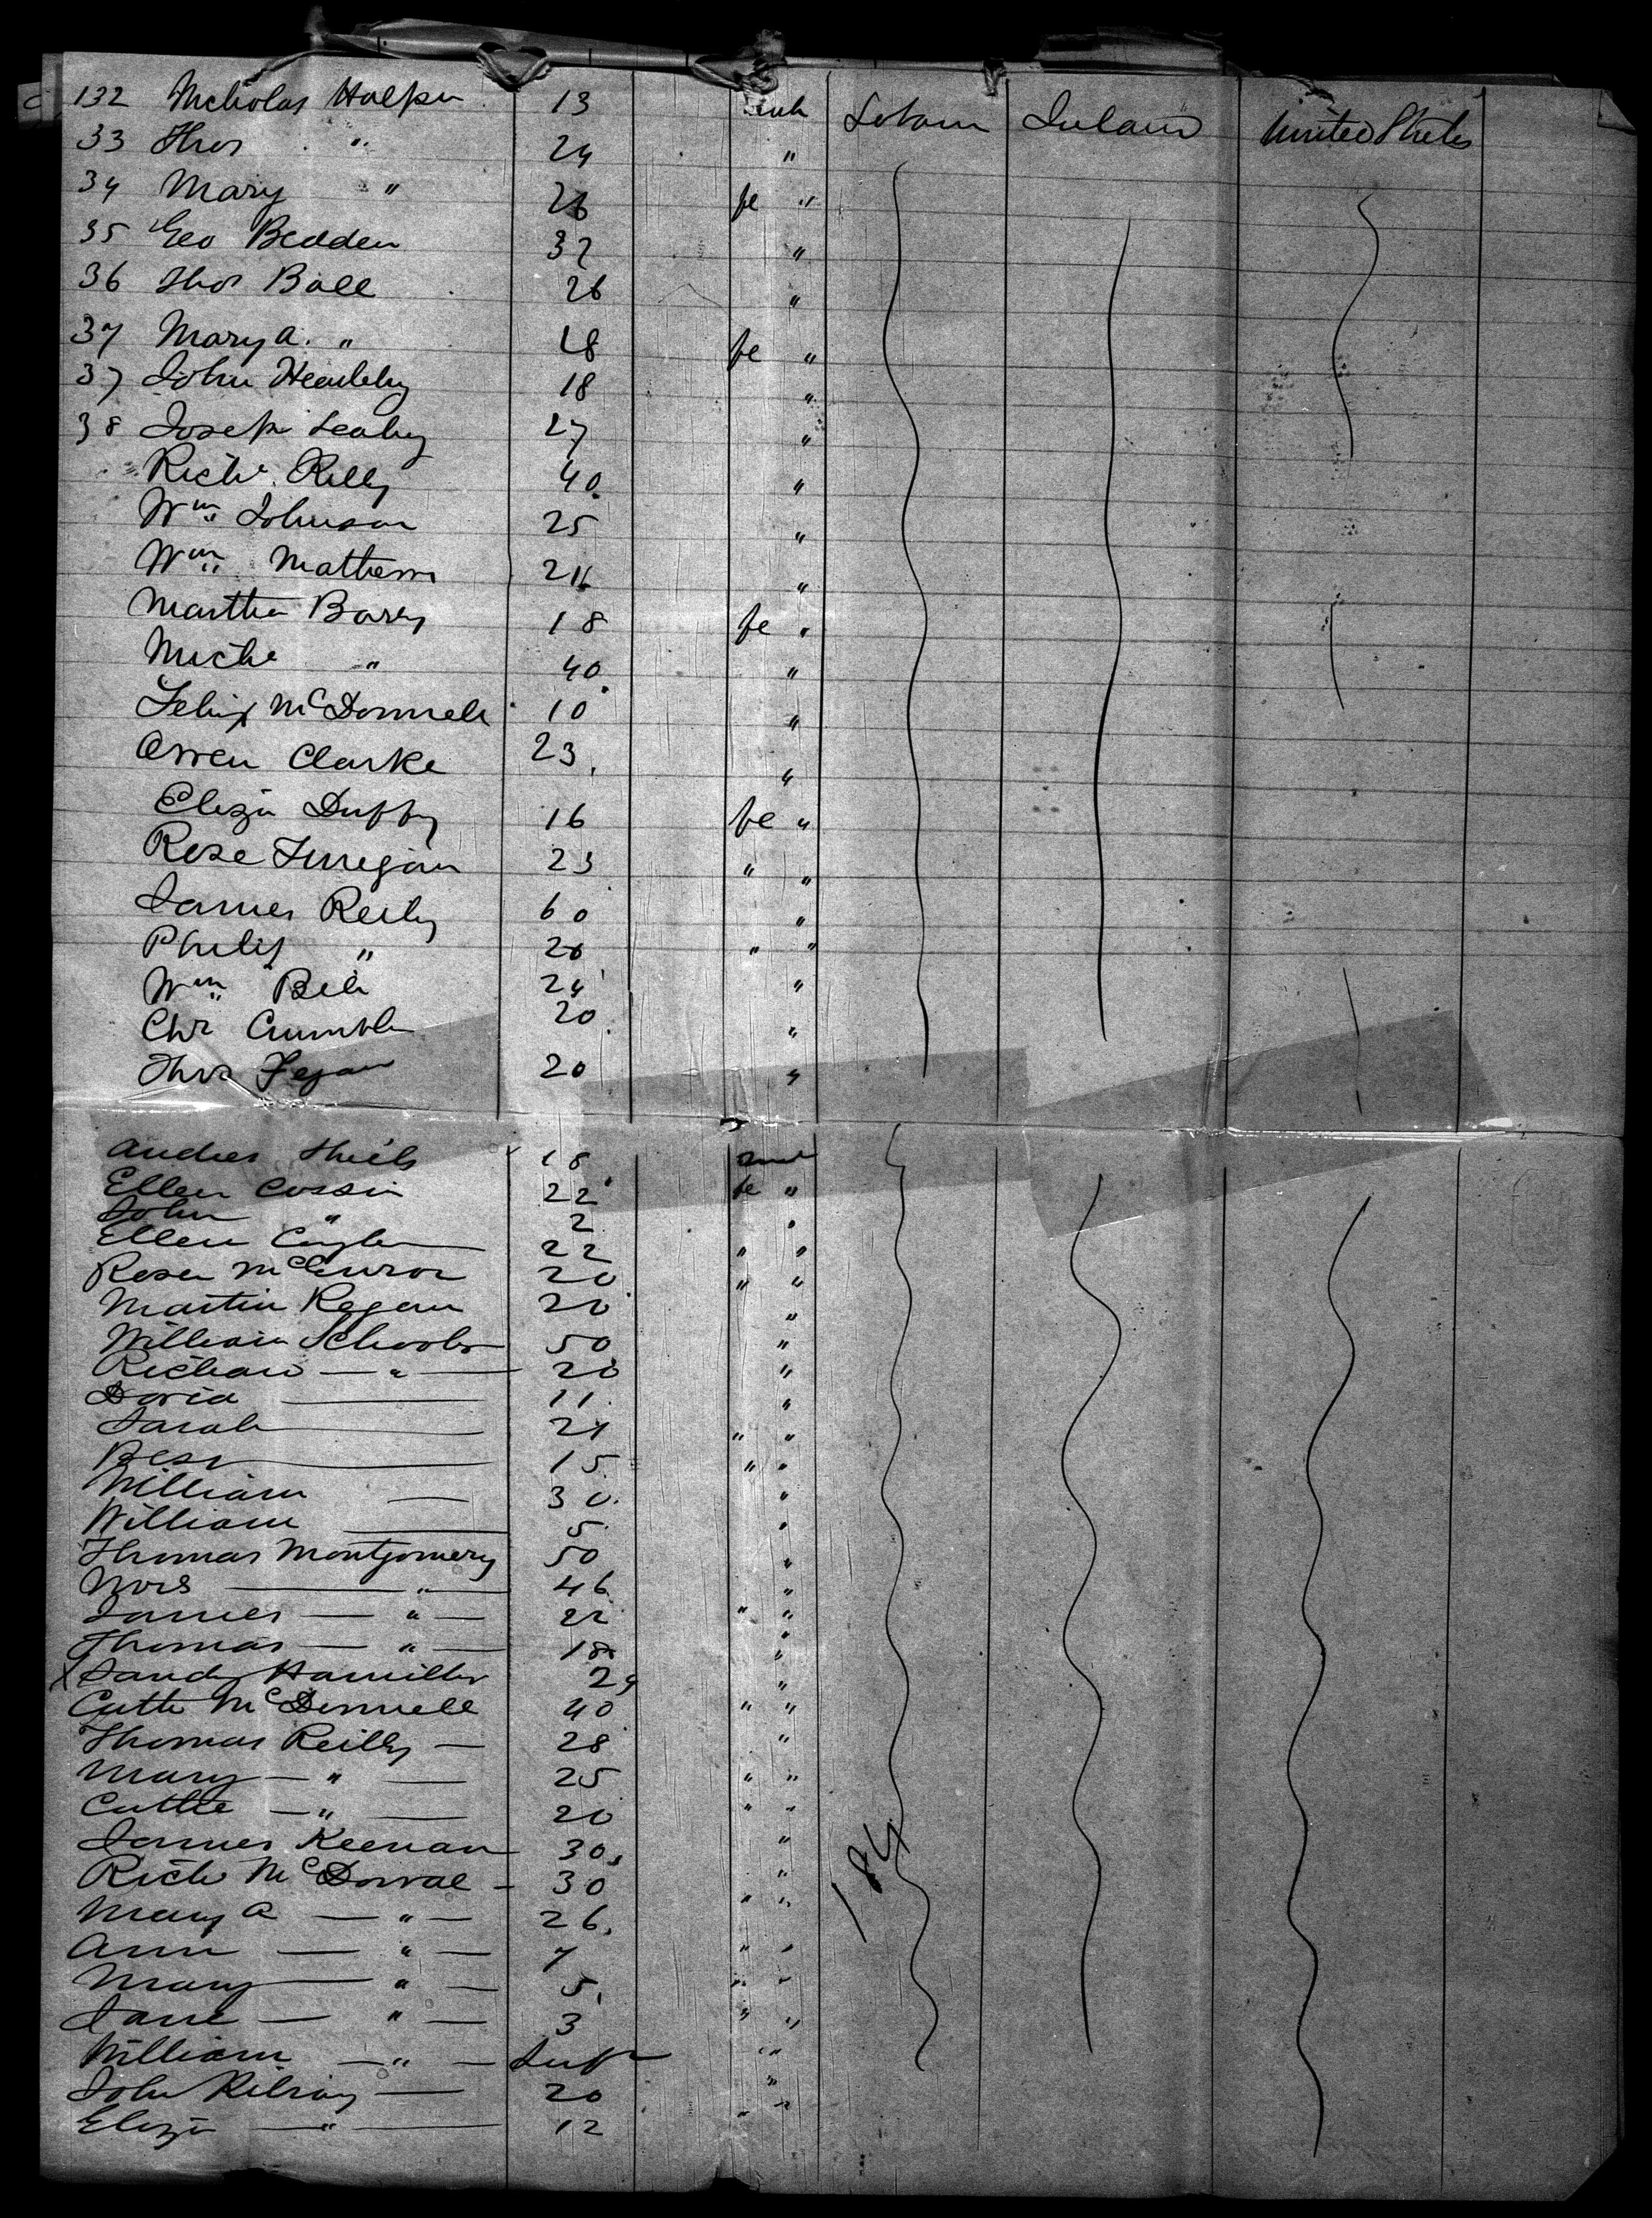 132 Nicholas Halpin 13 male Labour Ireland United States
33 Thos " 24 "
34 Mary " 26 fe "
35 Geo Bedden 32 "
36 Thos Ball 26 "
37 Mary A. " 18 fe "
37 John 18 "
38 Joseph Leahy 27 "
Richd. Reilly 40 "
Wm Johnson 25 "
Wm Mathews 24 "
Martha Barry 18 fe "
Michl " 40 "
Felix McDonnell 10 "
Owen Clarke 23 "
Eliza Duffy 16 fe "
Rose Finnegan 23 " "
James Reily 60 "
Philip " 20 " "
Wm Bell 24 "
Chr 20 "
Thos Fegan 20 "
Andrew Shiels 18 male
Ellen Cossin 22 fe "
John " 2 "
Ellen 22 " "
Rosen 20 " "
Martin Regan 20 "
William Schooler 50 "
Richard — " — 20 "
David — 11 "
Sarah — 21 " "
Bess — 15 " "
William — 30 "
William — 5 "
Thomas Montgomery 50 "
Mrs — " — 46 "
James — " — 22 " "
Thomas — " — 18 "
x Sandy Hamilton 24 "
Cathe McDonnell 40 " "
Thomas Reilly — 28 "
Mary — " — 25 " "
Cathe — " — 20 " "
James Keenan 30 "
Richd McDowal — 30 "
Mary A — " — 26 " "
Ann — " — 7 " "
Mary — " — 5 " "
Jane — " — 3 " "
William — " — Inft "
John — 20 "
Eliza — " — 12 " "
184